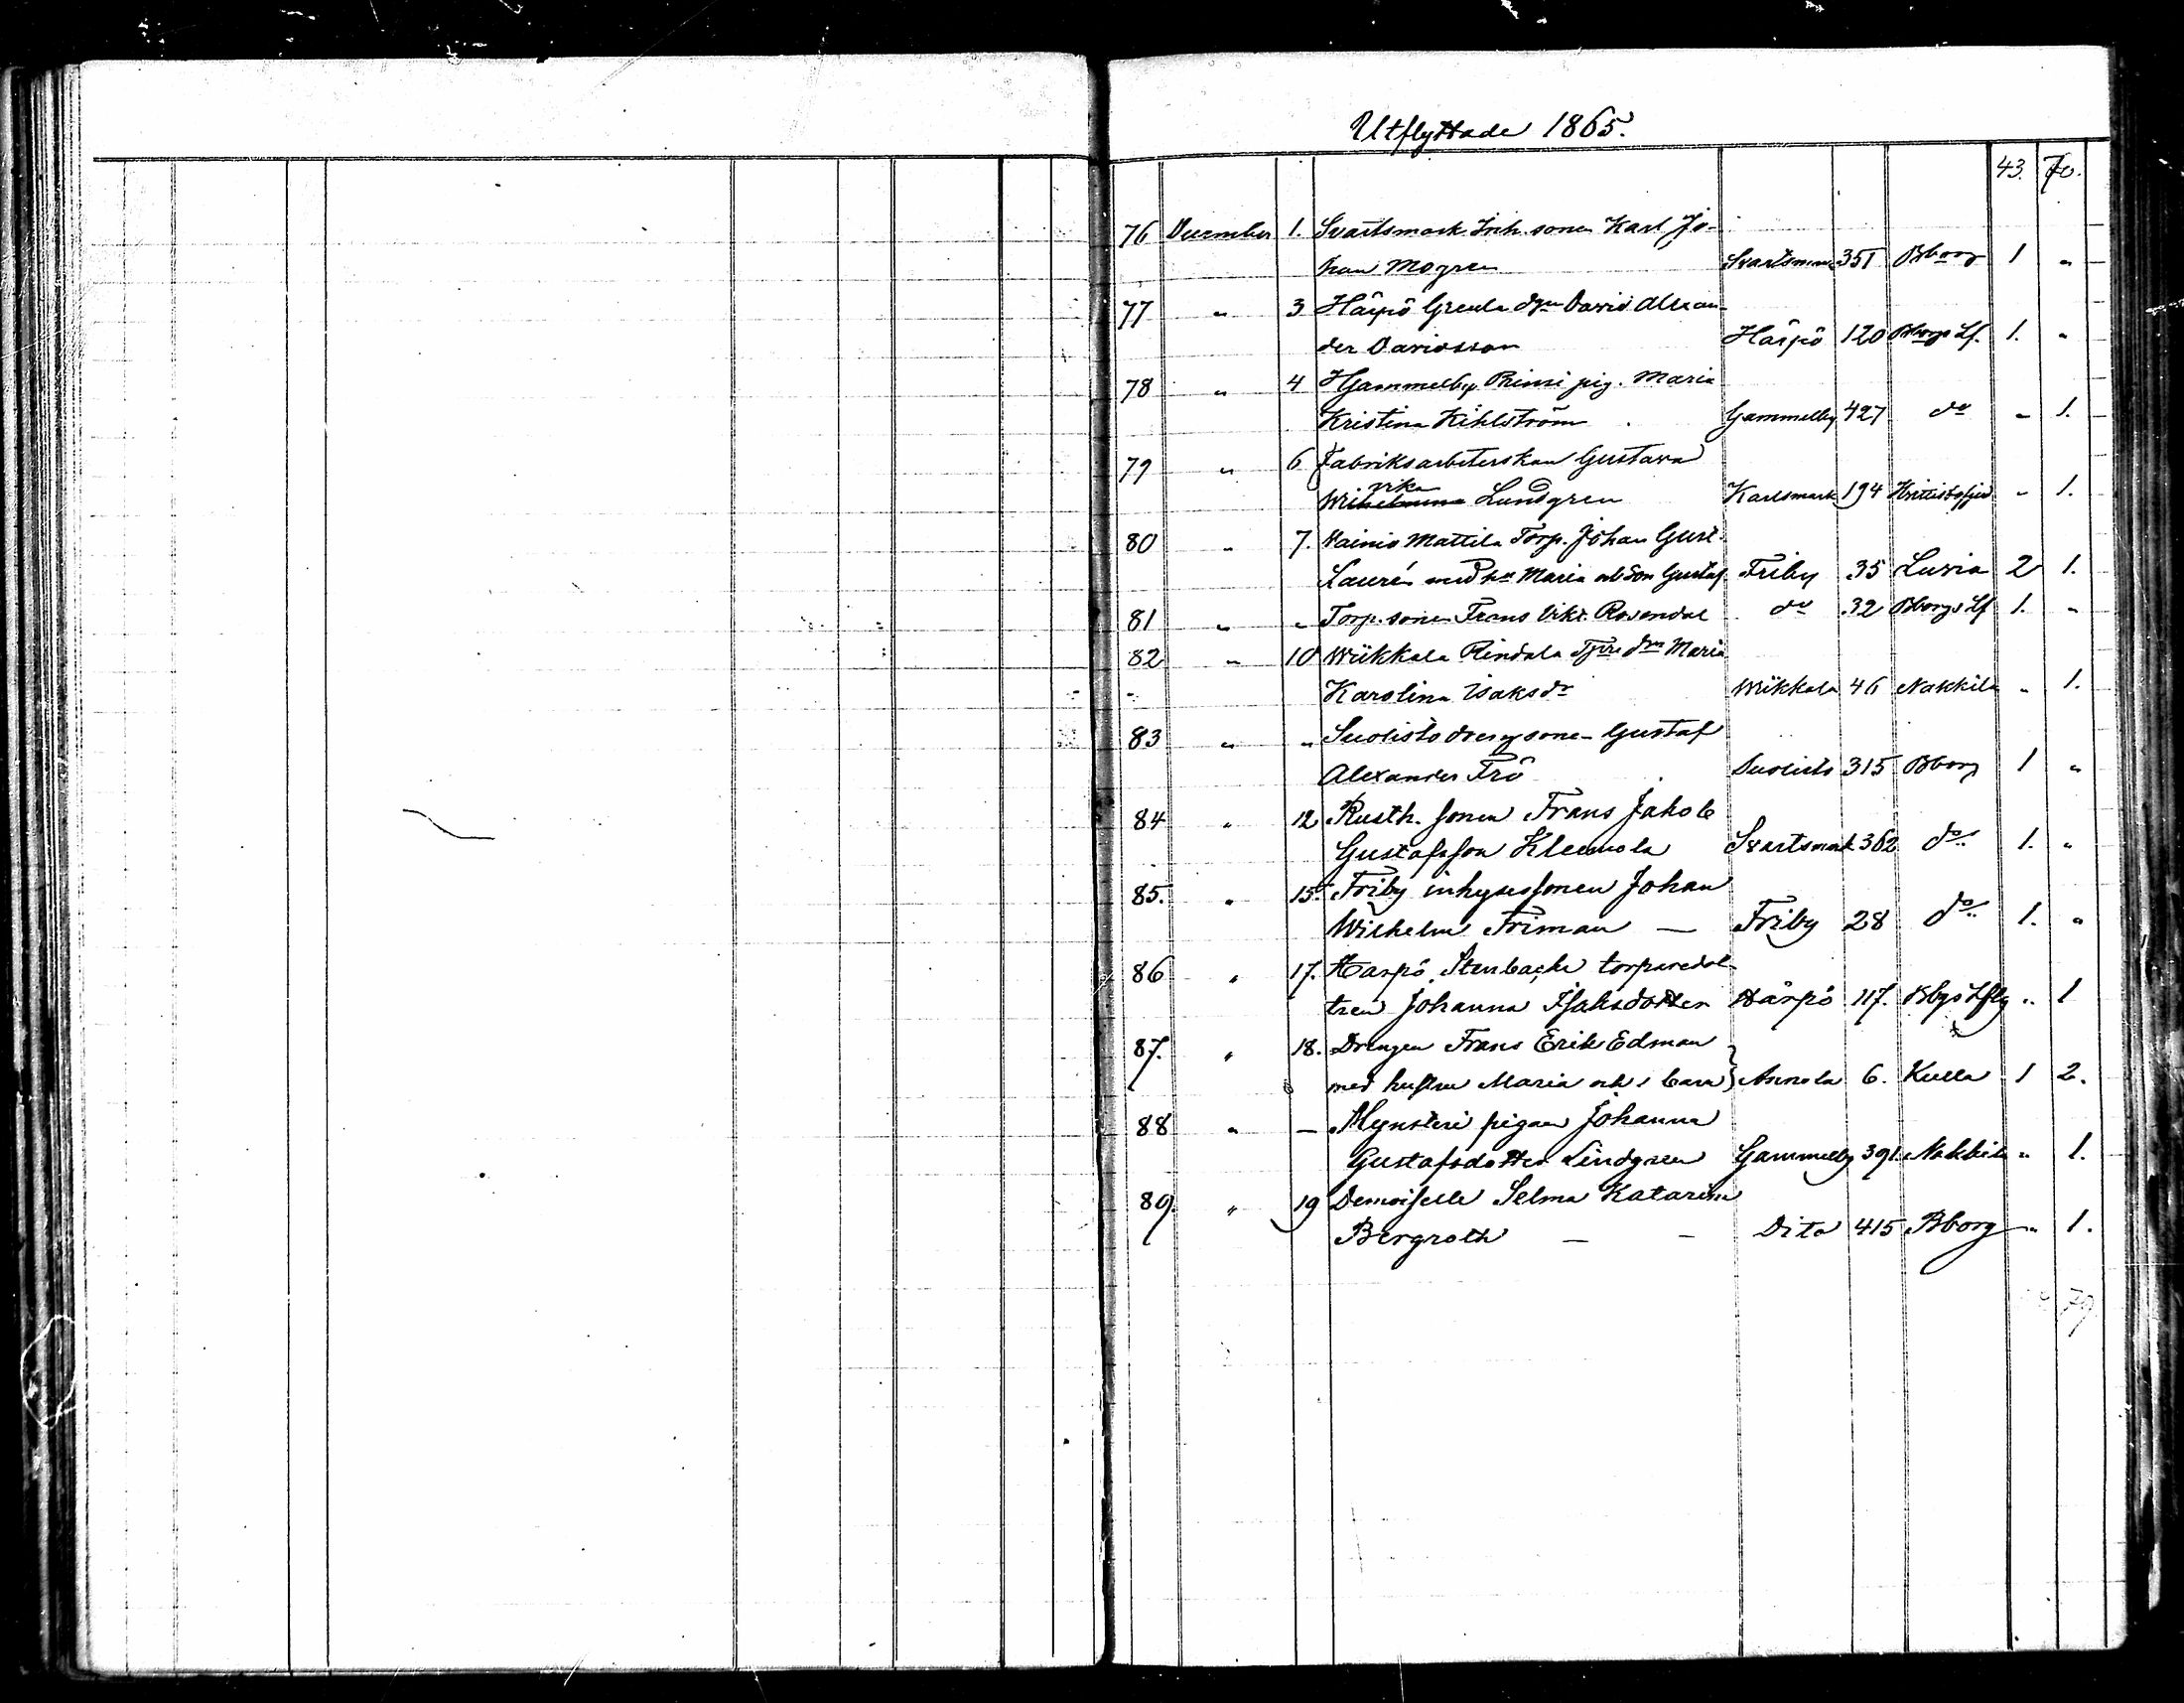 Utflyttade 1865.
43. 70.
76 December 1. Svartsmark Inh. sonen Karl Jo-
han Mogren Svartsmark 351 Bborg 1 "
77 " 3 Härpö Greula dgn David Alexan-
der Davidsson Härpö 120 Bborgs Lf. 1. "
78 " 4 Gammelby Prinsi pig. Maria
Kristina Kihlström Gammelby 427 do " 1.
79 " 6 Fabriksarbeterskan Gustava
vika
Wilhelmina Lundgren Karlsmark 194 " 1.
80 " 7. Wainio Mattila Torp. Johan Gust.
Laurén med hu Maria och Son Gustaf Friby 35 Luvia 2 1.
81 " " Torp. sonen Frans Vikt. Rosendal do 32 Bborgs Lf 1. "
82 " 10 Wiikkala Rindala Maria
Karolina Isaksdr Wiikkala 46 Nakkila " 1.
83 " " Suolisto drengsonen Gustaf
Alexander Frö Suolisto 315 Bborg 1 "
84 " 12 Rusth. sonen Frans Jakob
Gustafsson Kleemola Svartsmark 362 do 1. "
85. " 15. Friby inhysessonen Johan
Wilhelm Friman — Friby 28 do 1. "
86 " 17. Harpö Stenbacka torparedot-
tren Johanna Isaksdotter Härpö 117. Bbgs Lfg " 1
87. " 18. Drengen Frans Erik Edman
med hustru Maria och 1 barn } Annola 6. Kulla 1 2.
88 " — Mynsteri pigan Johanna
Gustafsdotter Lindgren Gammelby 391. Nakkila " 1.
89. " 19 Demoiselle Selma Katarina
Bergroth — — Dito 415 Bborg " 1.
79